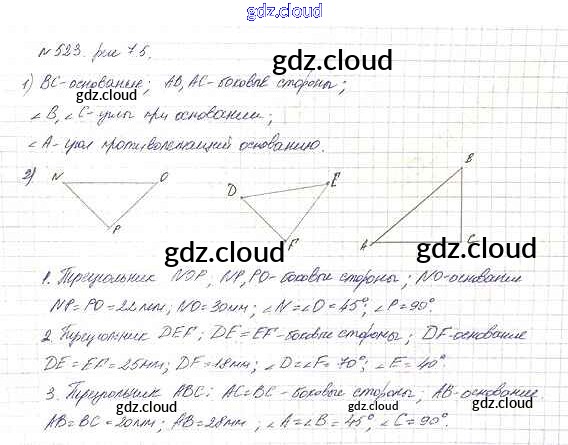 gdz.cloud
№523. рис 7.5.
gdz.cloud
1) BC-основание; AB, AC-боковые стороны;
gdz.cloud
gdz.cloud
∠B, ∠C-углы при основании;
∠A-угол противолежащий основанию.
gdz.cloud
2)
N O P
D E F
A B C
gdz.cloud
gdz.cloud
1. Треугольник NOP; NP, PO-боковые стороны; NO-основание
NP=PO=22мм; NO=30мм; ∠N=∠O=45°; ∠P=90°
gdz.cloud
2. Треугольник DEF; DE=EF-боковые стороны; DF-основание
DE=EF=25мм; DF=18мм; ∠D=∠F=70°; ∠E=40°
3. Треугольник ABC: AC=BC-боковые стороны; AB-основание.
gdz.cloud
gdz.cloud
AB=BC=20мм; AB=28мм; ∠A=∠B=45°; ∠C=90°.